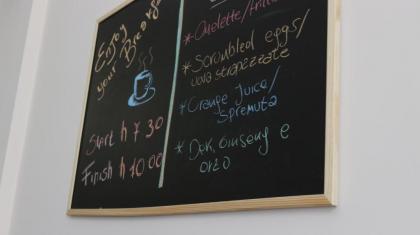 Enjoy
your Breakf
Start h 7 30
Finish h 10 00
* Omelette/fritta
* Scrumbled eggs/
uova strapazzate
* Orange Juice/
Spremuta
* Dek, Ginseng e
orzo